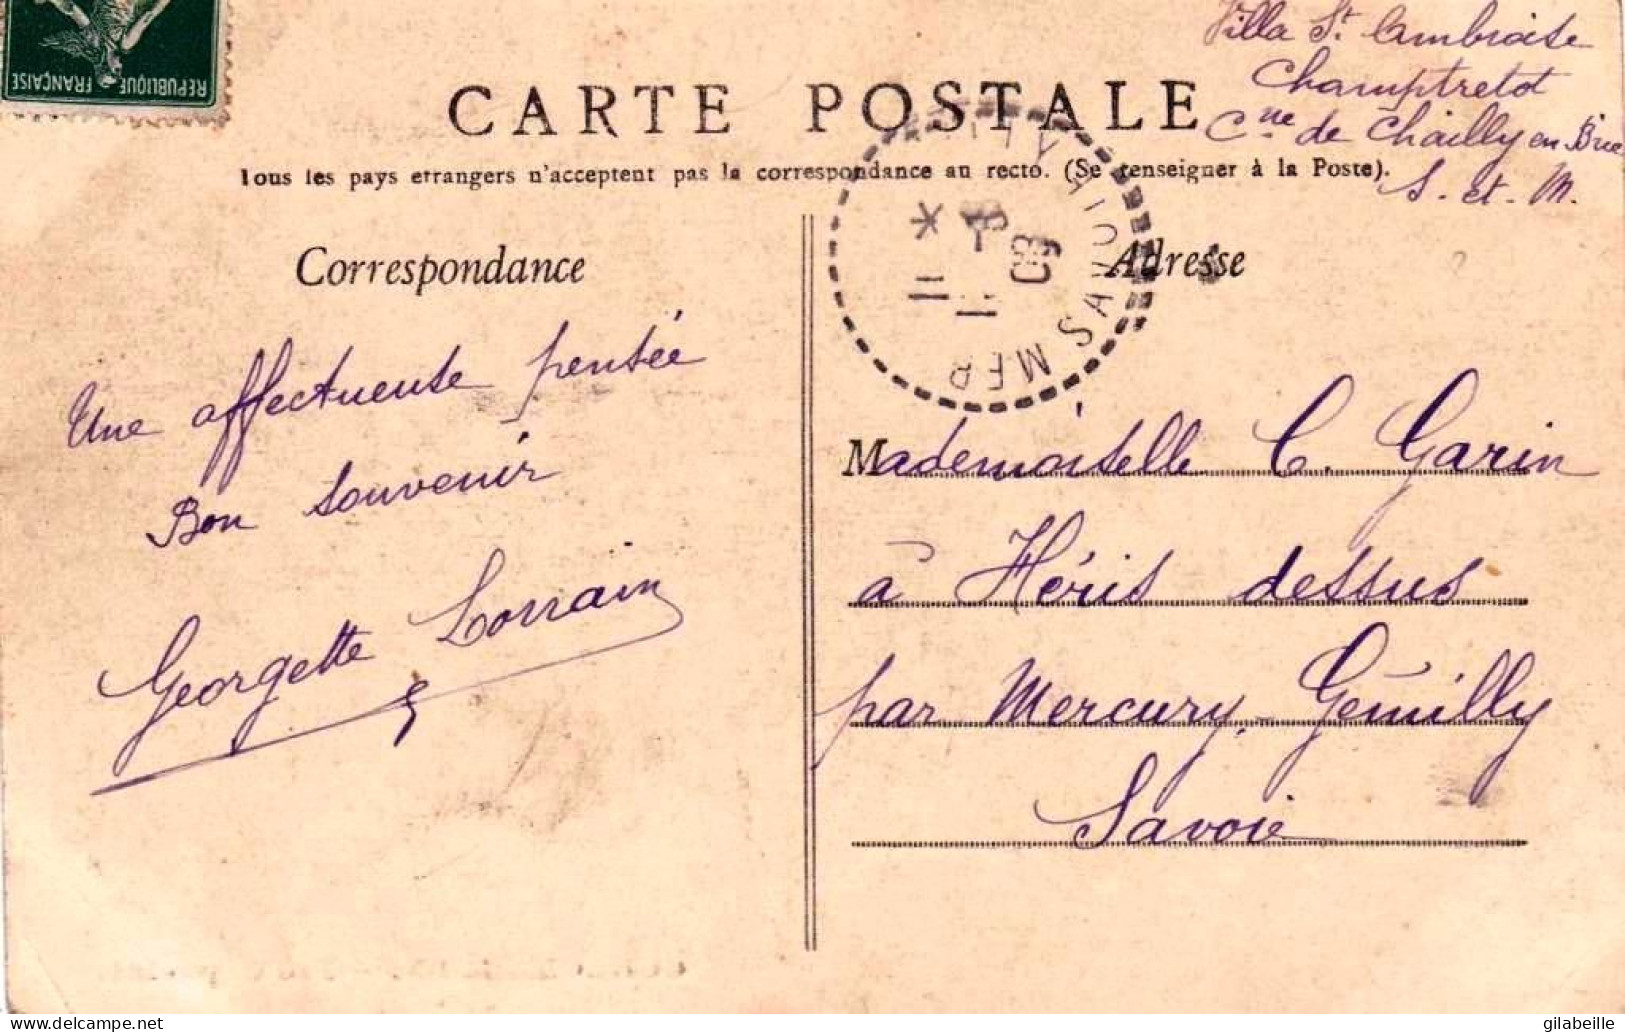 REPUBLIQUE FRANÇAISE
Villa St Ambroise
Champtretot
Cne de Chailly en Brie
S. et. M.
CARTE POSTALE
Tous les pays etrangers n'acceptent pas la correspondance au recto. (Se renseigner à la Poste).
Correspondance
Une affectueuse pensée
Bon souvenir
Georgette Lorrain
* 8
09
SAVOIE
Adresse
Mademoiselle C. Garin
à Héris dessus
par Mercury, Gémilly
Savoie
gilabeille